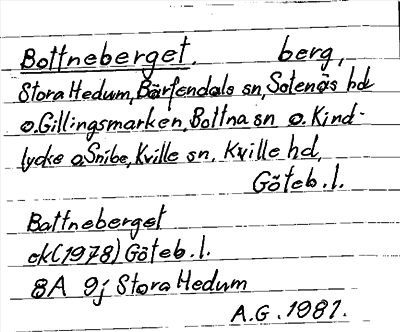 Bottneberget. berg,
Stora Hedum, Bärfendals sn, Sotenäs hd
o. Gillingsmarken, Bottna sn o. Kind-
lycke o Snibe, Kville sn, Kville hd,
Göteb. l.
Bottneberget
ek (1978) Göteb. l.
8A 9j Stora Hedum
A.G. 1981.